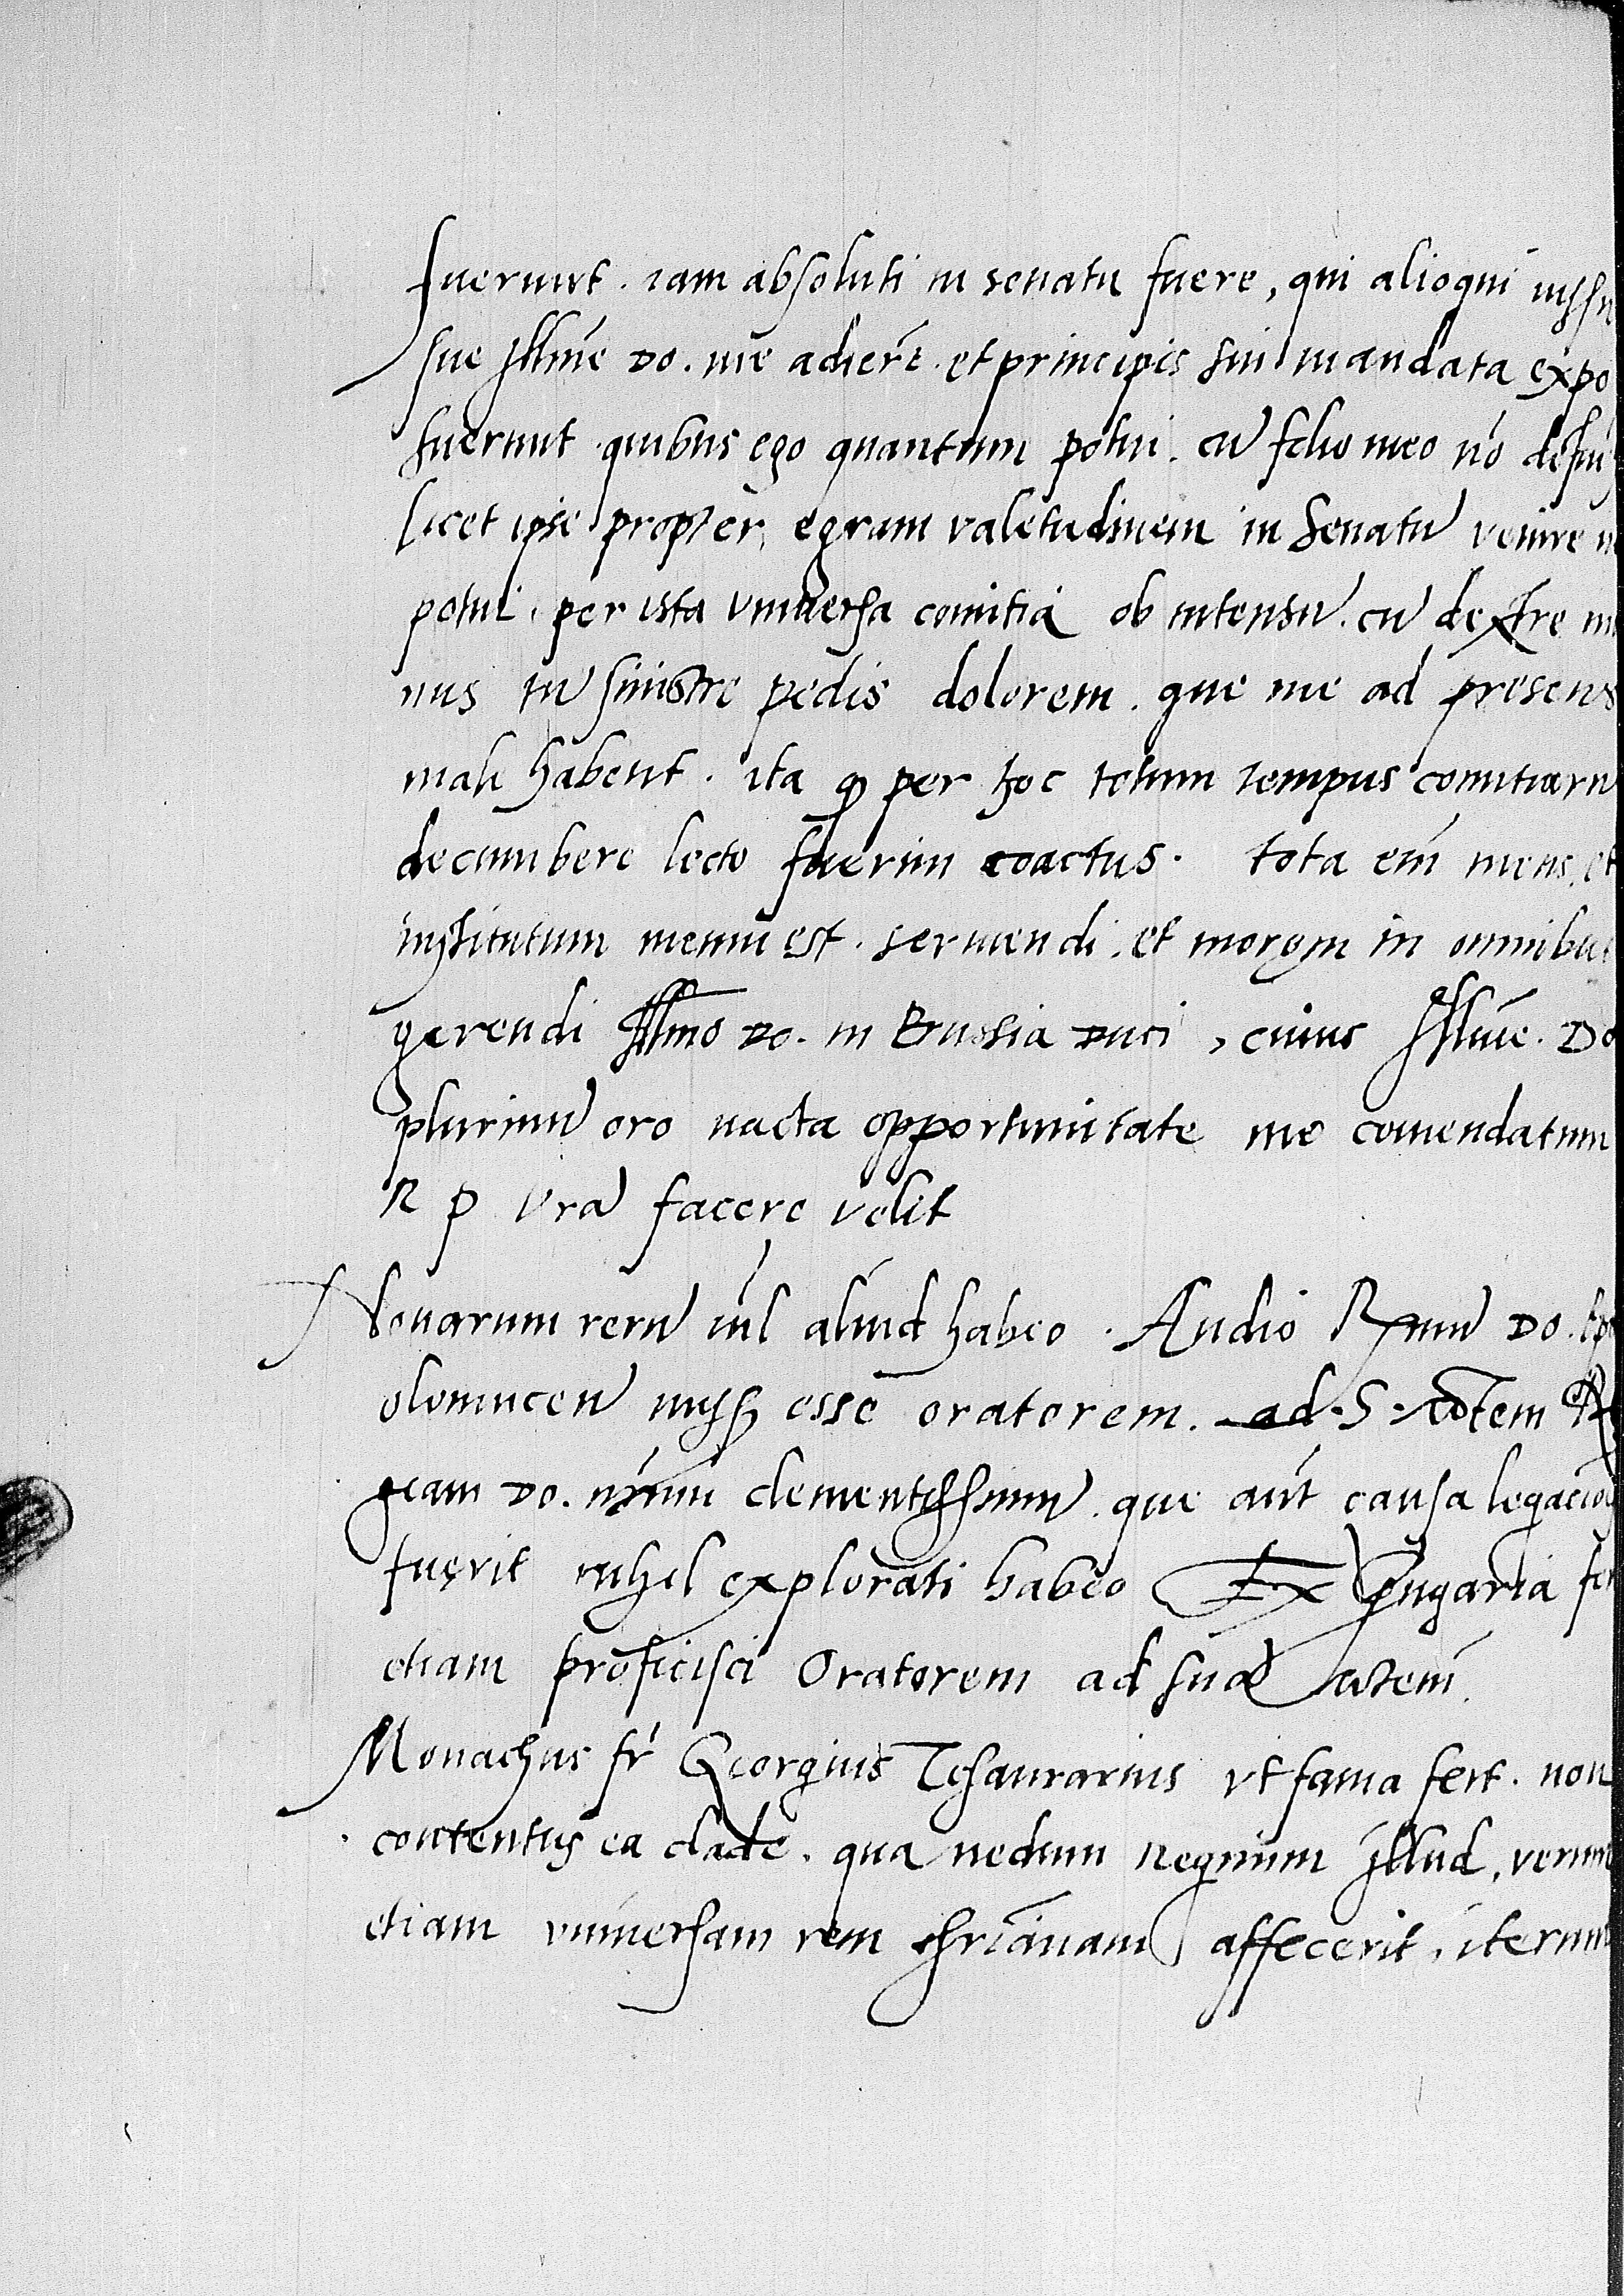 fuerunt . iam absoluti in senatu fuere, qui alioqui iussu
sue Illme Do. me adiert . et principis sui mandata expo
suerunt . quibus ego quantum potui . cū filio meo nō defui
licet ipse propter egram valetudinem in Senatū venire n
potui . per ista universa comitia ob intensū . cū dextre ma
nus tū sinistre pedis dolorem . que me ad presens
male habent . ita qd per hoc totum tempus comitiarū
decumbere lecto fuerim coactus . tota em mens . et
institutum meum est . serviendi . et morem in omnibus
gerendi Illmo Do. in Prussia Duci , cuius Illme . Do
plurimū oro nacta opportunitate me comendatum
R p Vra facere velit
Novarum rerū nil aliud habeo . Audio Rmum Do. Ep
olomucen missū esse oratorem . ad . S . Mtem Re
giam Do. nrum clementissimū . que aut causa legacionis
fuerit nihil explorati habeo Ex Ungaria fer
etiam proficisci Oratorem ad suā Mtem
Monachus fr Georgius Tesaurarius ut fama fert . non
contentus ea clade . qua nedum Regnum illud , verum
etiam universam rem christianam affecerit , iterum